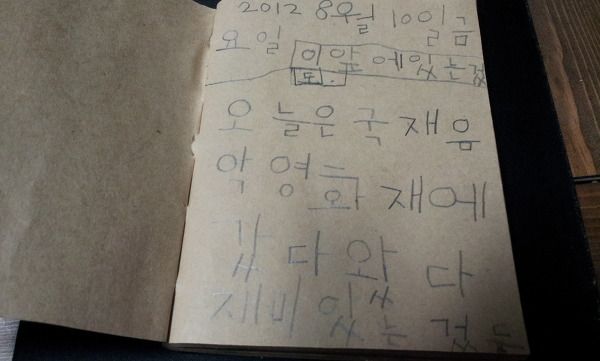 2012 8월 10일금
요일 이앞에있는것
도.
오늘은국재음
악영화재에
갔다왔다
재미있는것